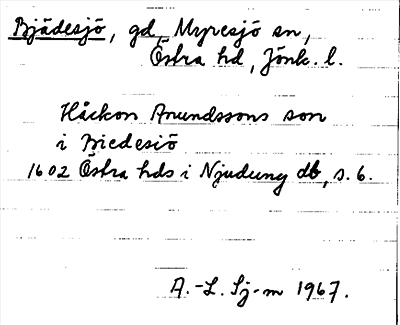 Bjädesjö, gd, Myresjö sn,
Östra hd, Jönk. l.
Håckon Anundssons son
i Biedesiö
1602 Östra hds i Njudung db, s. 6.
A.-L. Sj-m 1967.